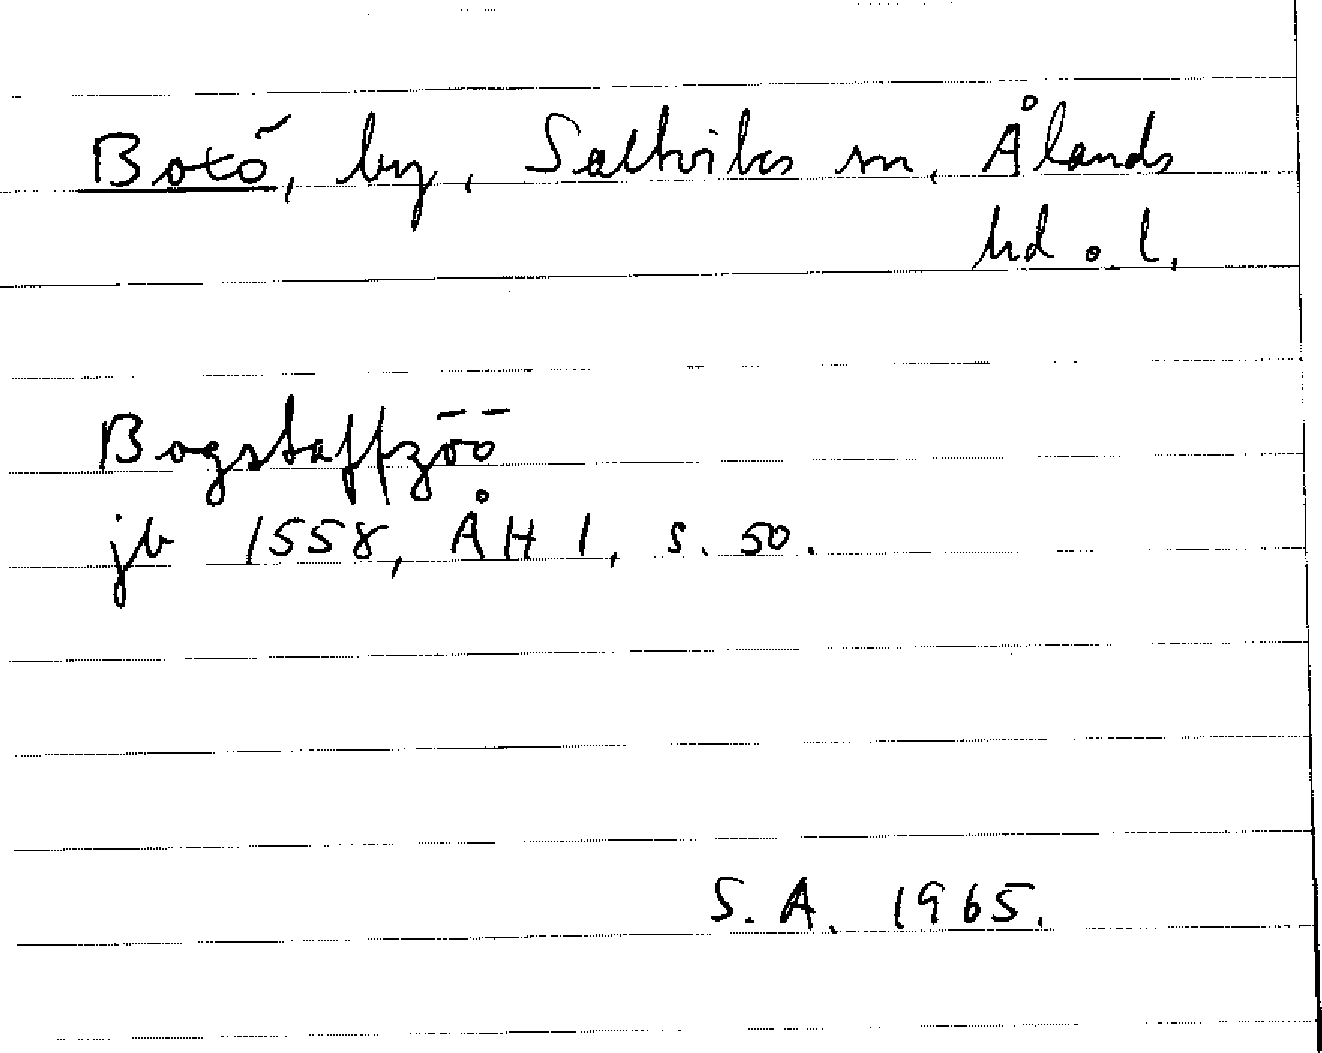 Botö, by, Saltviks sn, Ålands
hd o. l.
Bogstaffzöö
jb 1558, ÅH 1, s. 50.
S. A. 1965.